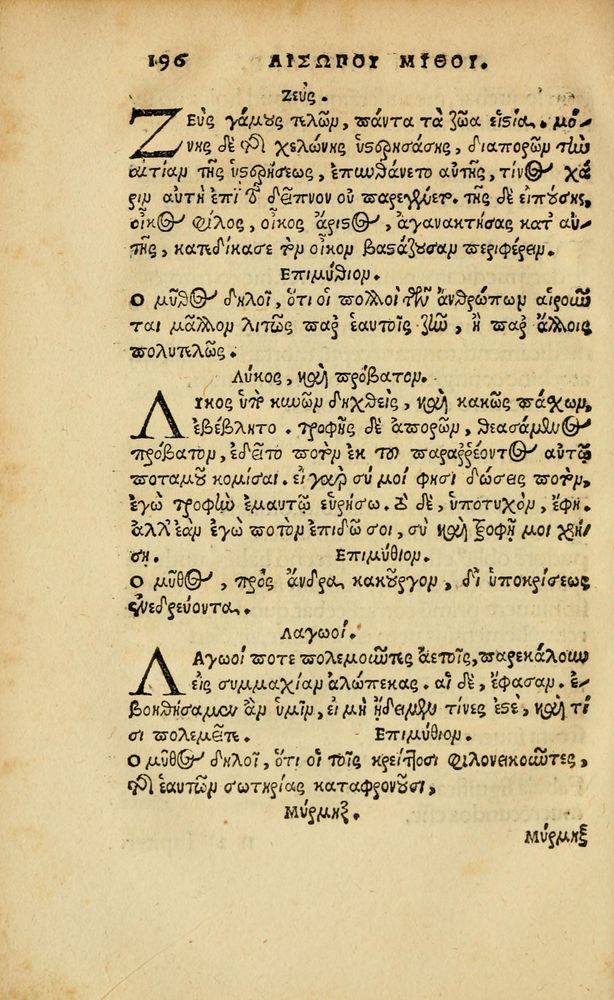 196 ΑΙΣΩΠΟΥ ΜΥΘΟΙ.
Ζεύς.
ΖΕὺς γάμους τελῶν, πάντα τὰ ζῶα εἱστία. μό-
νης δὲ τῆς χελώνης ὑστερησάσης, διαπορῶν τὴν
αἰτίαν τῆς ὑστερήσεως, ἐπυνθάνετο αὐτῆς, τίνος χά
ριν αὐτὴ ἐπὶ τὸ δεῖπνον οὐ παρεγένετο. τῆς δὲ εἰπούσης,
οἶκος φίλος, οἶκος ἄριστος, ἀγανακτήσας κατ αὐ-
τῆς, κατεδίκασε τὸν οἶκον βαστάζουσαν περιφέρειν.
Επιμύθιον.
Ο μῦθος δηλοῖ, ὅτι οἱ πολλοὶ τῶν ἀνθρώπων αἱροῦν
ται μᾶλλον λιτῶς παρ ἑαυτοῖς ζῆν, ἢ παρ ἄλλοις
πολυτελῶς.
Λύκος, καὶ πρόβατον.
ΛΥΚΟς ὑπὸ κυνῶν δηχθεὶς, καὶ κακῶς πάσχων,
ἐβέβλητο. τροφῆς δὲ ἀπορῶν, θεασάμενος
πρόβατον, ἐδεῖτο ποτὸν ἐκ τοῦ παραῤῥέοντος αὐτῷ
ποταμοῦ κομίσαι. εἰ γὰρ σύ μοί φησι δώσεις ποτὸν,
ἐγὼ τροφὴν ἐμαυτῷ εὑρήσω. τὸ δὲ, ὑποτυχὸν, ἔφη.
ἀλλ ἐὰν ἐγὼ ποτὸν ἐπιδῶ σοι, σὺ καὶ τροφῇ μοι χρή-
σῃ. Επιμύθιον.
Ο μῦθος, πρὸς ἄνδρα κακοῦργον, δι ὑποκρίσεως
ἐνεδρεύοντα.
Λαγωοί.
ΛΑγωοί ποτε πολεμοῦντες ἀετοῖς, παρεκάλουν
εἰς συμμαχίαν ἀλώπεκας. αἱ δὲ, ἔφασαν. ἐ-
βοηθήσαμεν ἂν ὑμῖν, εἰ μὴ ᾔδειμεν τίνες ἐστὲ, καὶ τί
σι πολεμεῖτε. Επιμύθιον.
Ο μῦθος δηλοῖ, ὅτι οἱ τοῖς κρείττοσι φιλονεικοῦντες,
τῆς ἑαυτῶν σωτηρίας καταφρονοῦσι,
Μύρμηξ.
Μύρμηξ